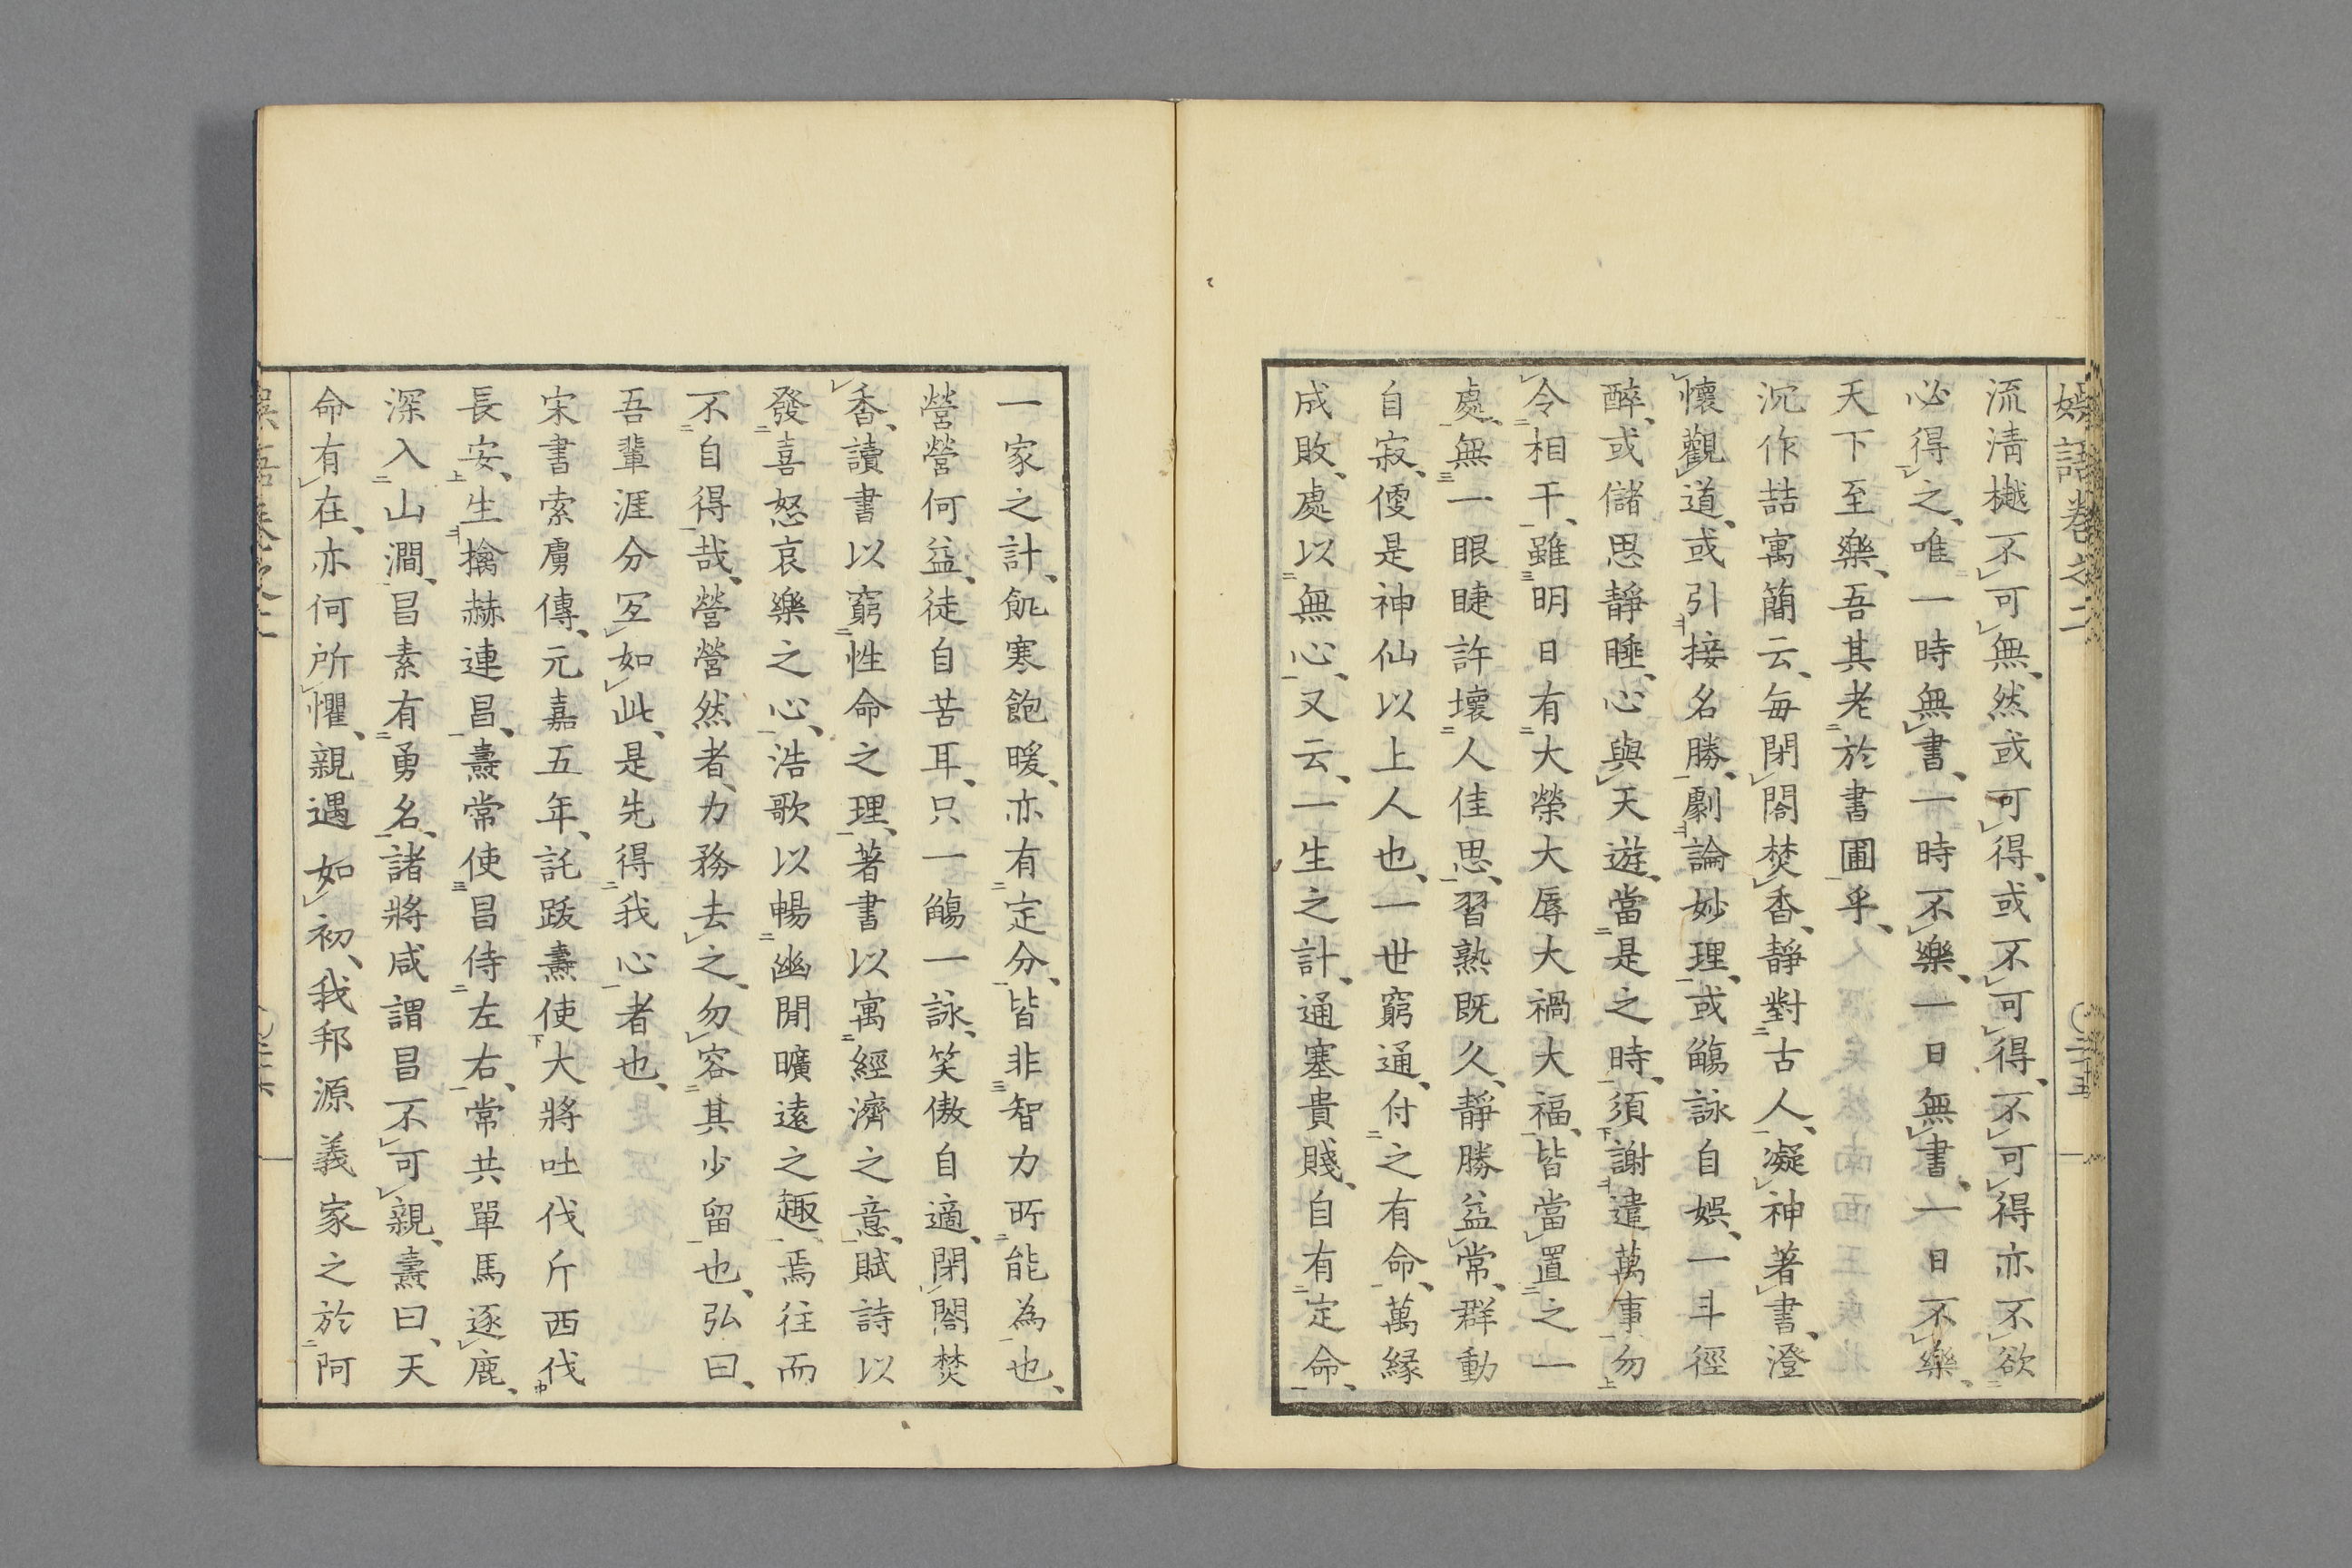 娯語卷之二
〇二十五
流淸樾不可無、然或可得、或不可得、不可得亦不欲
必得之、唯一時無書、一時不樂、一日無書、一日不樂、
天下至樂、吾其老於書圃乎、
沉作喆寓簡云、每閉閤焚香、靜對古人、凝神著書、澄
懷觀道、或引接名勝、劇論妙理、或觴詠自娯、一斗徑
醉、或儲思靜睡、心與天遊、當是之時、須謝遣萬事勿
令相干、雖明日有大榮大辱大禍大福、皆當置之一
處、無一眼睫許壞人佳思、習熟既久、靜勝益常、群動
自寂、便是神仙以上人也、一世窮通、付之有命、萬緣
成敗、處以無心、又云、一生之計、通塞貴賤、自有定命、
一家之計、飢寒飽暖、亦有定分、皆非智力所能為也、
營營何益、徒自苦耳、只一觴一詠、笑傲自適、閉閤焚
香、讀書以窮性命之理、著書以寓經濟之意、賦詩以
發喜怒哀樂之心、浩歌以暢幽閒曠遠之趣、焉往而
不自得哉、營營然者、力務去之、勿容其少留也、弘曰、
吾輩涯分宜如此、是先得我心者也、
宋書索虜傳、元嘉五年、託跋燾使大將吐伐斤西伐
長安、生擒赫連昌、燾常使昌侍左右、常共單馬逐鹿、
深入山澗、昌素有勇名、諸將咸謂昌不可親、燾曰、天
命有在、亦何所懼、親遇如初、我邦源義家之於阿